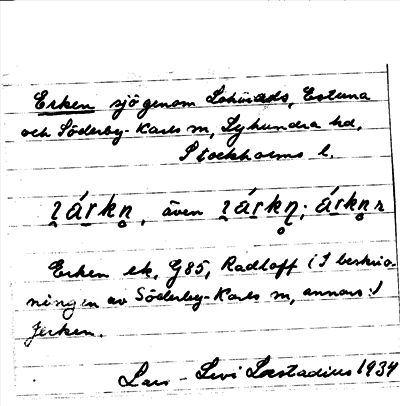 Erken sjö genom Lohärads, Estuna
och Söderby-Karls sn, Lyhundra hd,
Stockholms l.
även
Erken ek. G85, Radloff i 1 beskriv-
ningen av Söderby-Karls sn, annars:
Jerken.
Lars-Levi Læstadius 1934